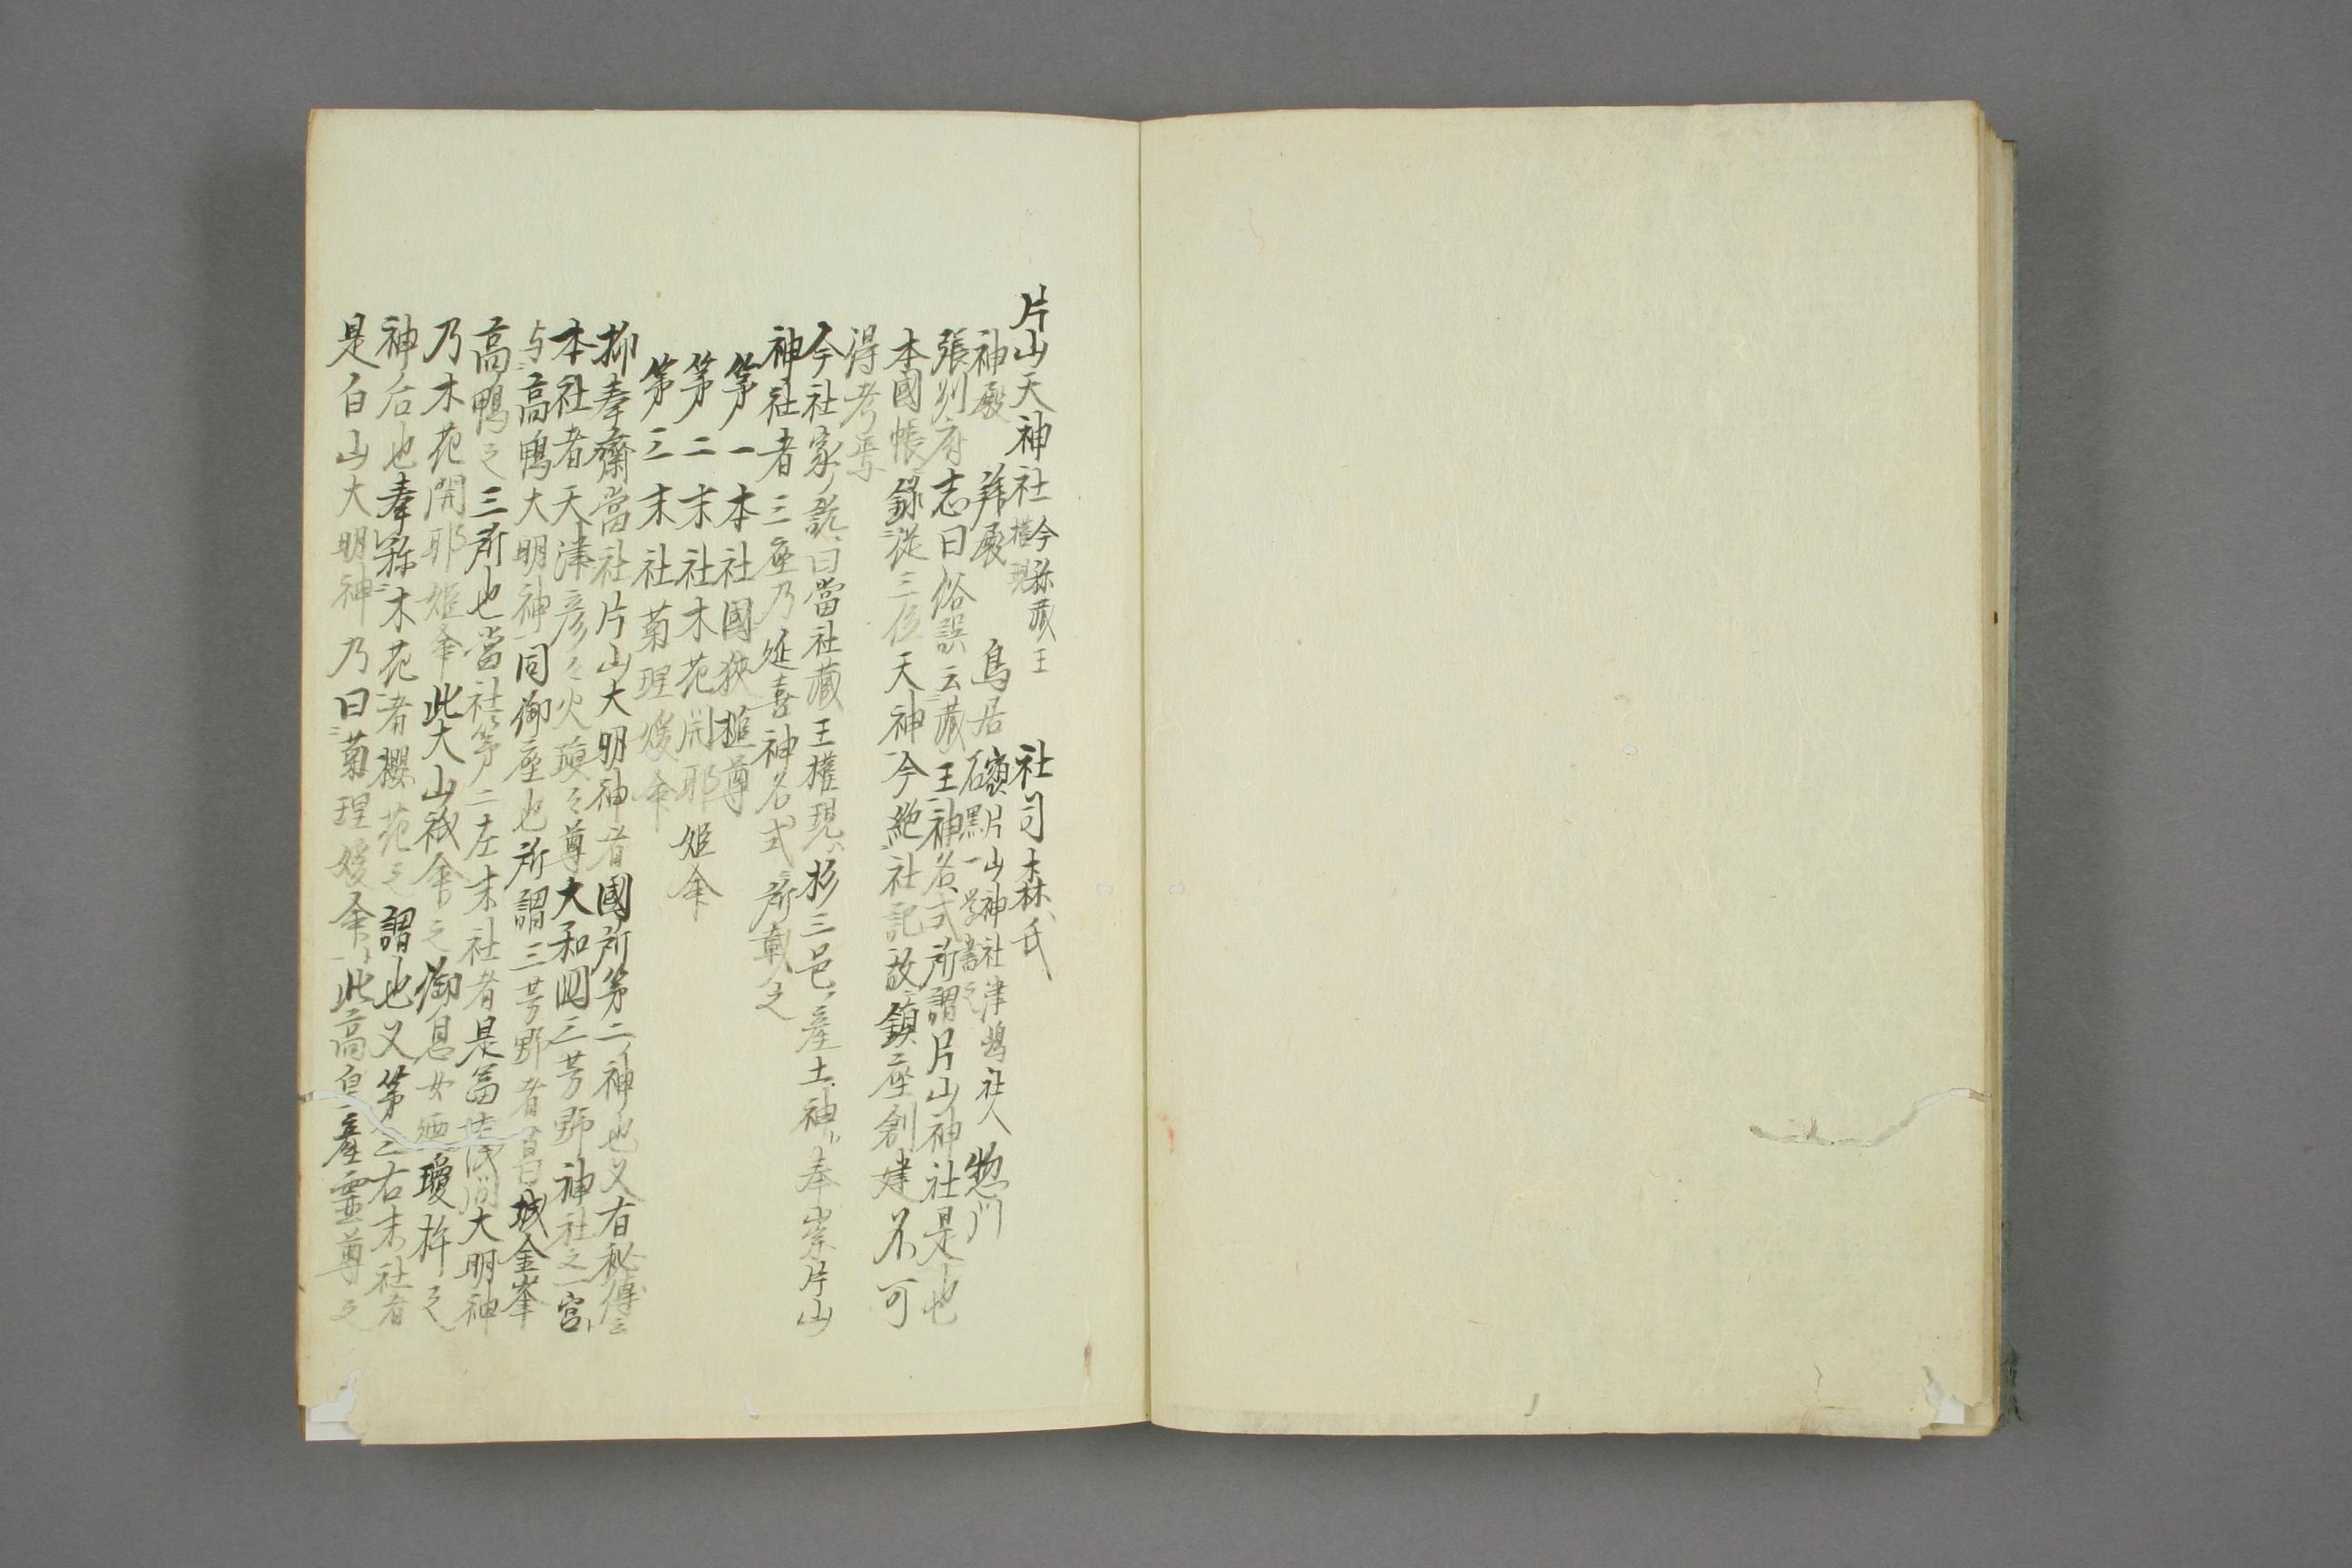 片山天神社 今称蔵王権現 社司 森氏
神殿 拝殿 鳥居 額 片山神社 津嶋社人 惣門
張州府志曰俗誤云蔵王神名式所謂片山神社是也
本國帳録従三位天神今絶社記故鎮座創建不可
得考焉
今社家ノ説曰當社蔵王権現ハ杉三邑ノ産土神ニ奉崇片山
神社者三座乃延喜神名式ニ所載之
第一本社國狭槌尊
第二末社木花開耶姫命
第三末社菊理媛命
抑奉齋當社片山大明神者國所第二ノ神也又有秘傳云
本社者天津彦々火瓊々尊大和国三芳野神社之一宮ト
与高鴨大明神同御座也所謂三芳野者葛城金峯
高鴨之三所也當社第二左末社者是富士浅間大明神
乃木花開耶姫命此大山祇命之御息女 瓊杵之
神后也奉称木花者櫻花之謂也又第三右末社者
是白山大明神乃曰菊理媛命此高皇産霊尊之